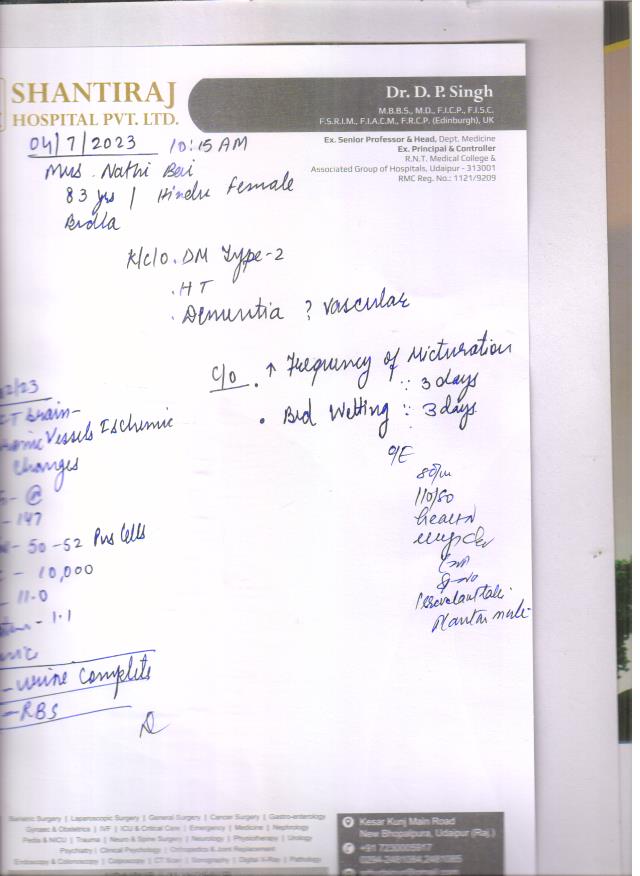 SHANTIRAJ
HOSPITAL PVT. LTD.
Dr. D. P. Singh
M.B.B.S., M.D., F.I.C.P., F.I.S.C.
F.S.R.I.M., F.I.A.C.M., F.R.C.P. (Edinburgh), UK
Ex. Senior Professor & Head, Dept. Medicine
Ex. Principal & Controller
R.N.T. Medical College &
Associated Group of Hospitals, Udaipur - 313001
RMC Reg. No.: 1121/9209
04/7/2023 10:15 AM
Mrs. Nathi Bai
83 yrs / Hindu Female
K/C/O . DM Type-2
. HT
. Dementia ? Vascular
C/O . ↑ Frequency of Micturation
∵ 3 days
• Bed Wetting ∵ 3 days
2/23
CT Brain-
Vessels Ischemic
Changes
- 147
- 50-52 Pus Cells
- 10,000
- 11.0
- 1.1
- Urine Complete
- RBS
O/E
80/m
110/80
Bariatric Surgery | Laparoscopic Surgery | General Surgery | Cancer Surgery | Gastro-enterology
Gynaec & Obstetrics | IVF | ICU & Critical Care | Emergency | Medicine | Nephrology
Pedia & NICU | Trauma | Neuro & Spine Surgery | Neurology | Physiotherapy | Urology
Psychiatry | Clinical Psychology | Orthopedics & Joint Replacement
Endoscopy & Colonoscopy | Colposcopy | CT Scan | Sonography | Digital X-Ray | Pathology
Kesar Kunj Main Road
New Bhopalpura, Udaipur (Raj.)
+91 7230005917
0294-2481084,2481085